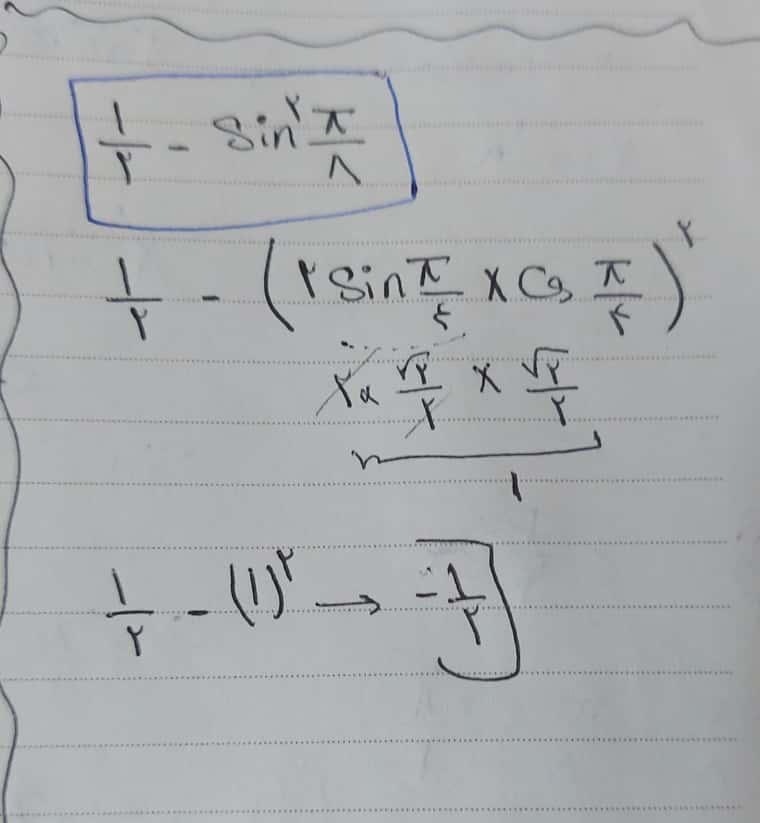 ۱/۲ - Sin^۲ π/۸
۱/۲ - (۲ Sin π/۴ × Cos π/۴)^۲
۲× √۲/۲ × √۲/۲
۱
۱/۲ - (۱)^۲ → -۱/۲